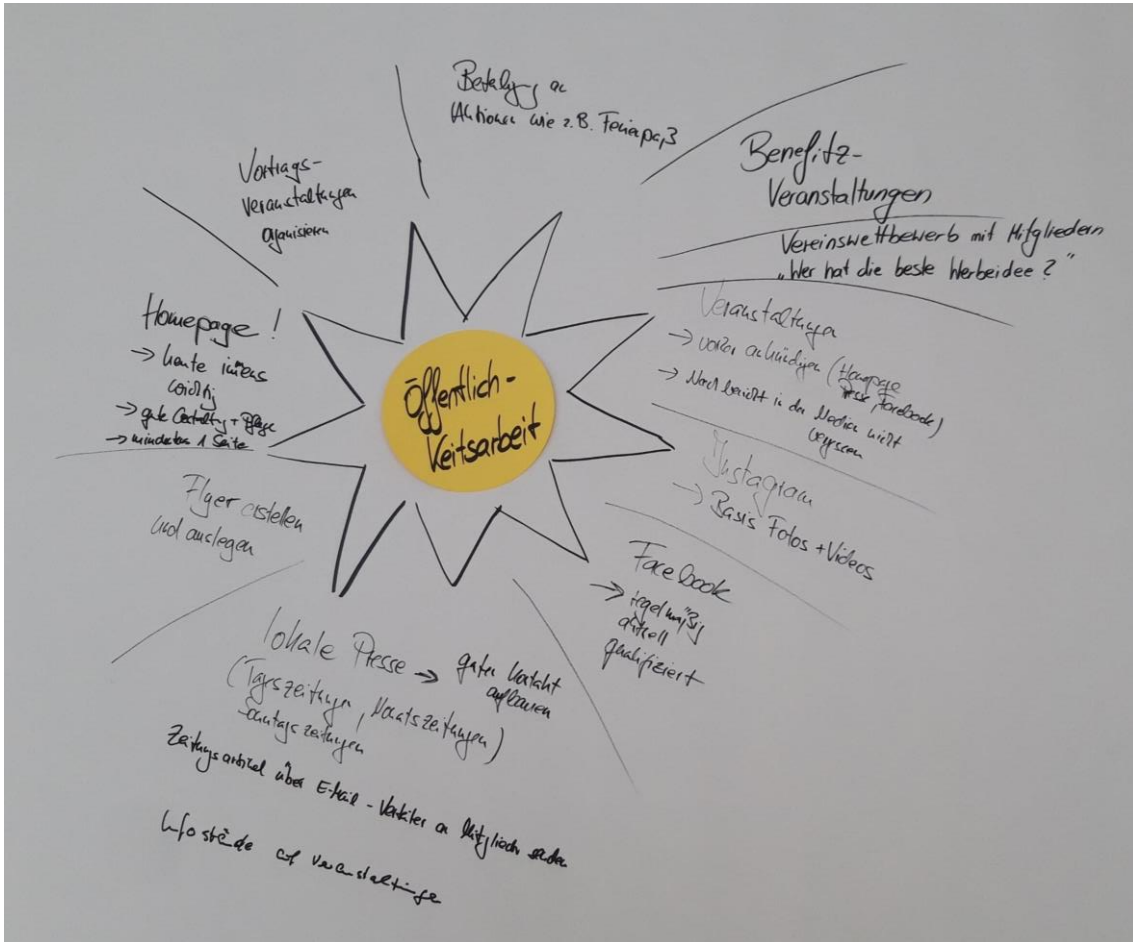 Öffentlich-
keitsarbeit
Beteiligung an
Aktionen wie z.B. Ferienpaß
Benefitz-
Veranstaltungen
Vereinswettbewerb mit Mitgliedern
„Wer hat die beste Werbeidee?"
Veranstaltungen
→ vorher ankündigen (Homepage
Presse, Facebook)
→ Nachbericht in den Medien nicht
vergessen
Instagram
→ Basis Fotos + Videos
Facebook
→ regelmäßig
aktuell
qualifiziert
lokale Presse → guten Kontakt
aufbauen
(Tageszeitungen, Monatszeitungen)
Sonntagszeitungen
Zeitungsartikel über E-Mail-Verteiler an Mitglieder senden
Infostände auf Veranstaltungen
Flyer erstellen
und auslegen
Homepage !
→ heute immens
wichtig
→ gute Gestaltung + Pflege
→ mindestens 1 Seite
Vortrags-
veranstaltungen
organisieren